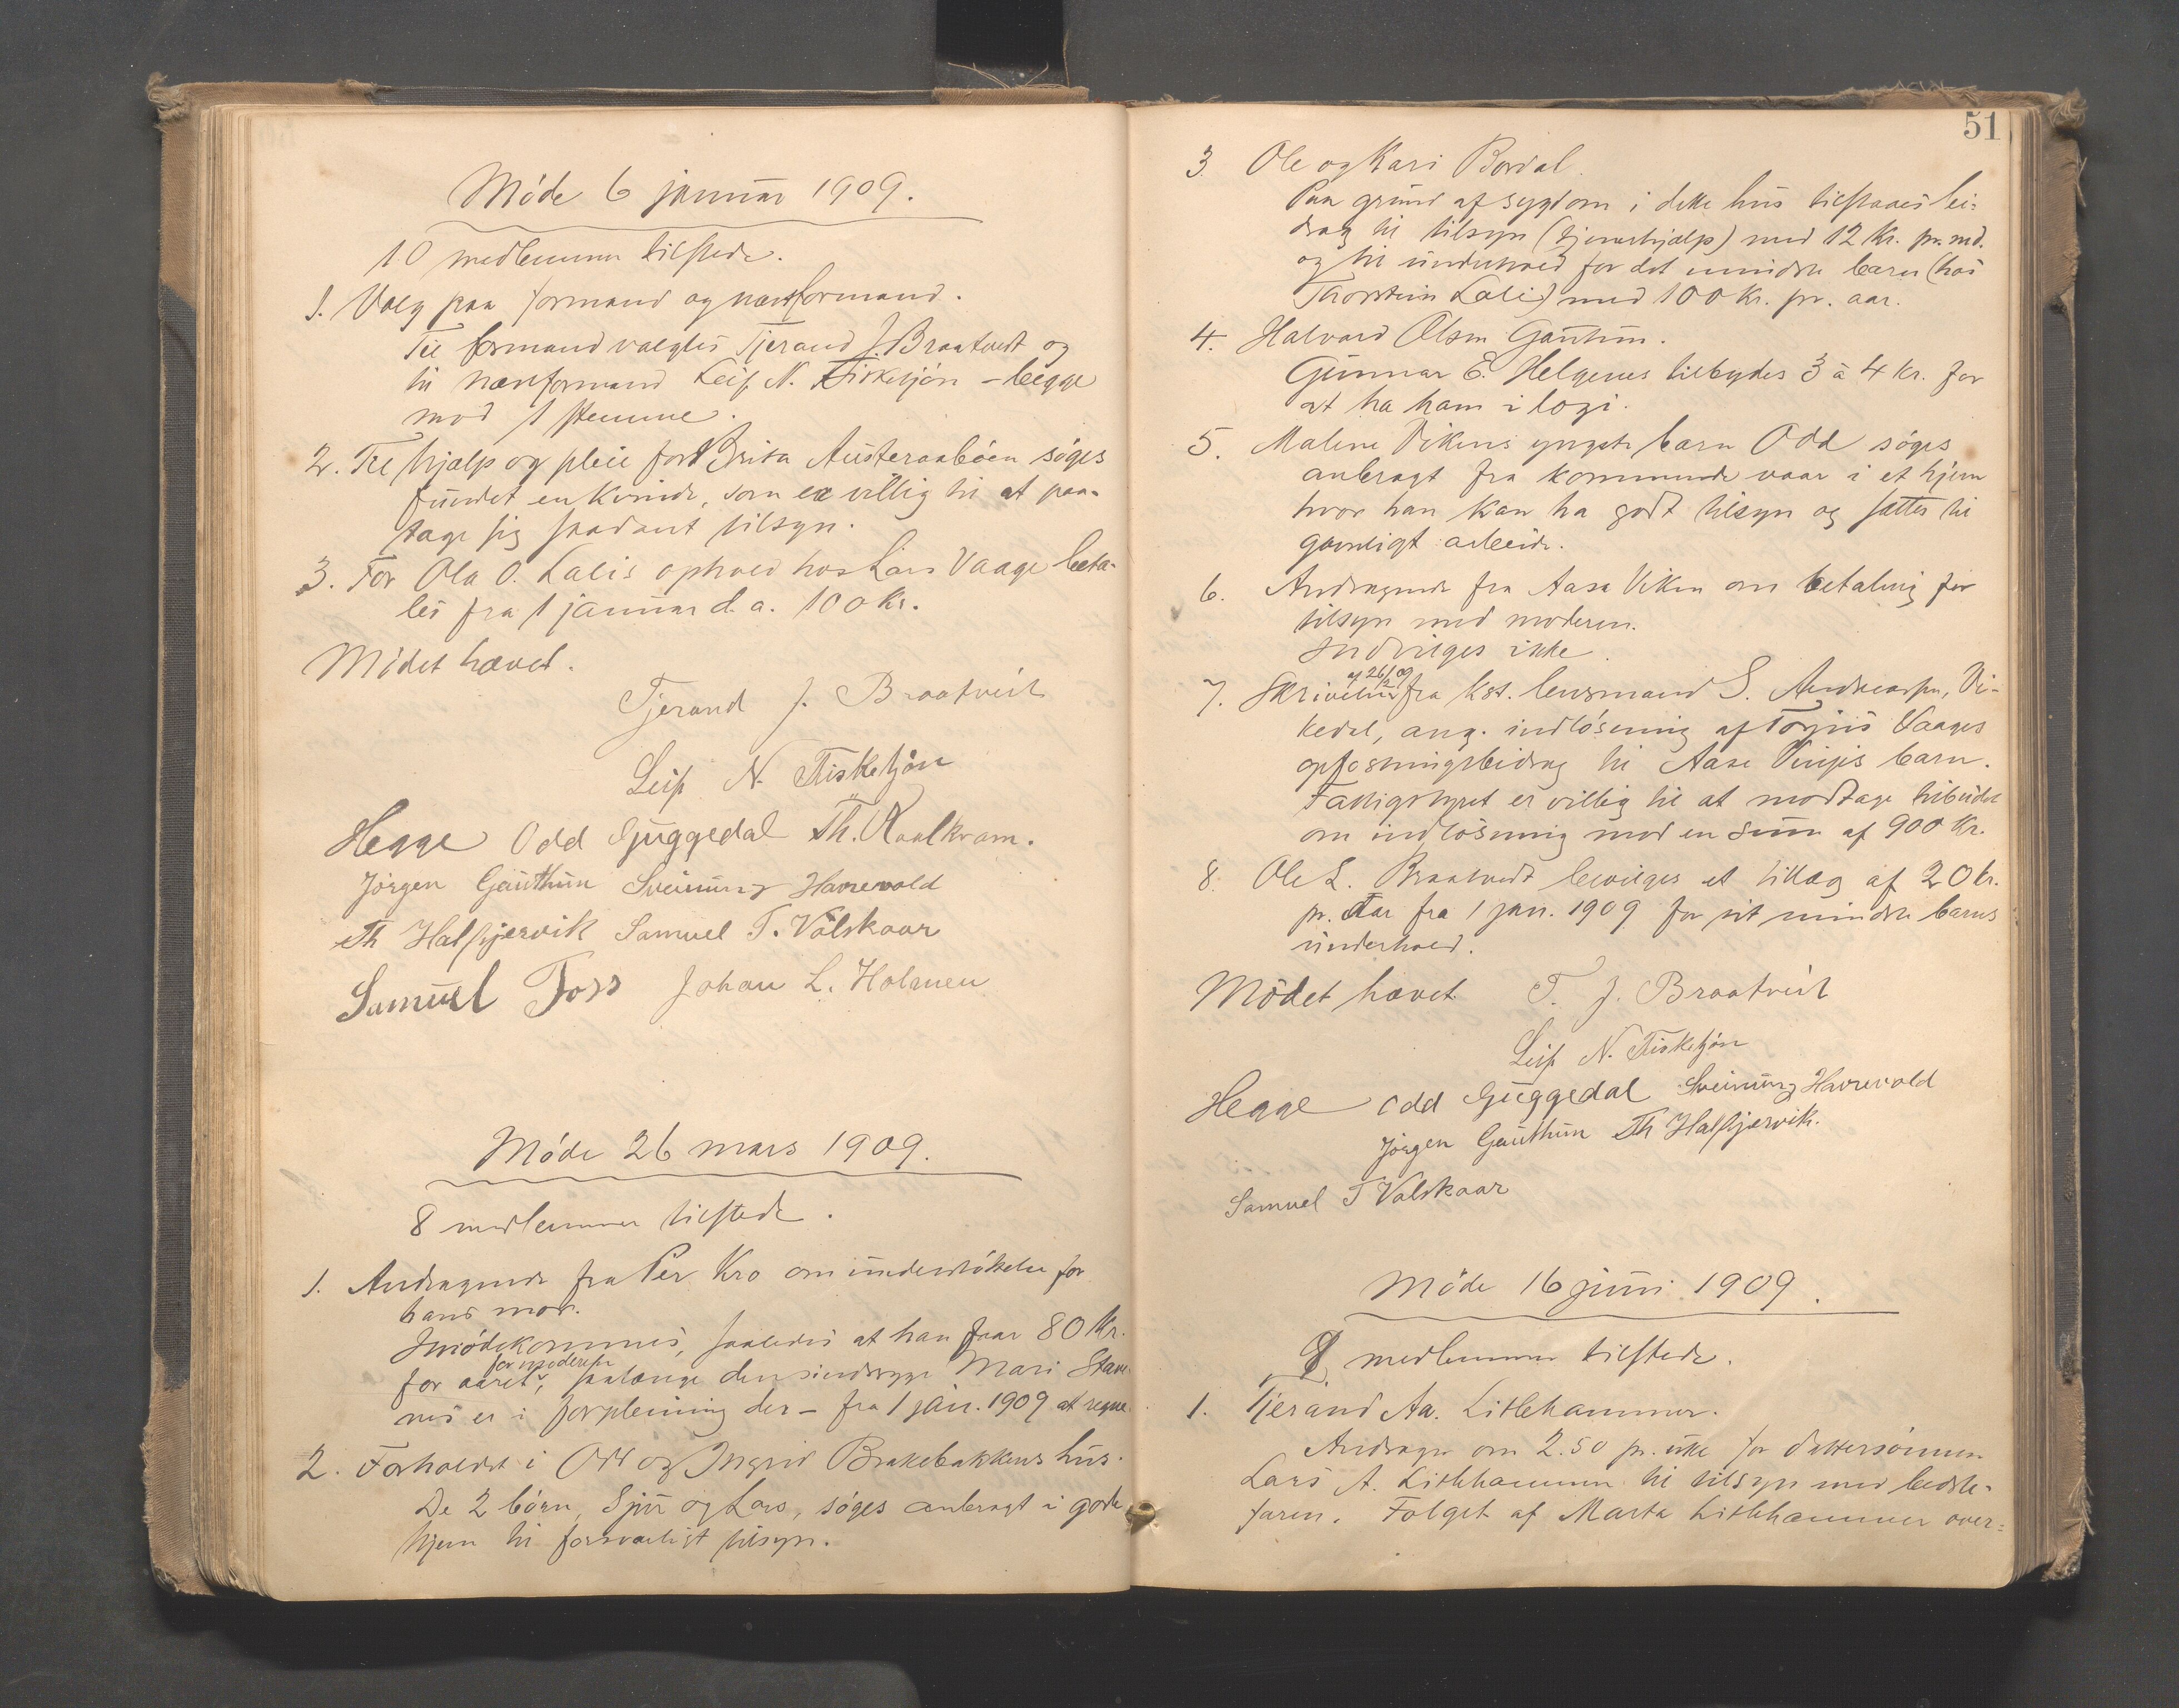 Møde 6 januar 1909.
10 medlemmer tilstede.
1. Valg paa formand og næstformand.
Til formand valgtes Tjerand J. Braatveit og
til næstformand Leif N. Fisketjøn – begge
mod 1 stemme.
2. Til hjælp og pleie for Brita Austeraabøen søges
fundet en kvinde, som er villig til at paa-
tage sig saadant tilsyn.
3. For Ola O. Lalis ophold hos Lars Vaage beta-
les fra 1 januar d. a. 100 kr.
Mødet hævet.
Tjerand J. Braatveit
Leif N. Fisketjøn
Hegge Odd Guggedal Th. Kaalkvam.
Jörgen Gauthun Sveinung Havrevold
Th Halfkjærvik Samuel T. Valskaar
Samuel Foss Johan L. Holmen
Møde 26 mars 1909.
8 medlemmer tilstede.
1. Andragende fra Per Kro om understøttelse for
hans mor.
Imødekommes, saaledes at han faar 80 kr.
for moderen
for aaret, saalænge den sindssyge Mari Stave-
nes er i forpleining der – fra 1 jan. 1909 at regne.
2. Forholdet i Odd og Ingrid Brakebakkens hus.
De 2 børn, Sjur og Lars, søges anbragt i gode
hjem til forsvarligt tilsyn.
51
3. Ole og Kari Bordal.
Paa grund af sygdom i dette hus tilstaaes bi-
drag til tilsyn (tjenerhjælp) med 12 kr. pr. md.
og til underhold for det mindste barn (hos
Thorstein Lali) med 100 kr. pr. aar.
4. Halvard Olsen Gauthun.
Gunnar E. Helgenes tilbydes 3 à 4 kr. for
at ha ham i logi.
5. Malene Vikens yngste barn Odd søges
anbragt fra kommende vaar i et hjem
hvor han kan ha godt tilsyn og sættes til
gavnligt arbeide.
6. Andragende fra Aasa Viken om betaling for
tilsyn med moderen.
Indvilges ikke.
af 26/2 09
7. Skrivelse fra kst. lensmand S. Andreassen, Vi-
kedal, ang. indløsning af Torjus Vaages
opfostringsbidrag til Aase Vinjes barn.
Fattigstyret er villig til at modtage tilbudet
om indløsning mod en sum af 900 kr.
8. Ole L. Braatveit bevilges et tillæg af 20 kr.
pr. aar fra 1 jan. 1909 for sit mindste barns
underhold.
Mødet hævet T. J. Braatveit
Leif N. Fisketjøn
Hegge Odd Guggedal Sveinung Havrevold
Jörgen Gauthun Th Halfkjærvik.
Samuel T Valskaar
Møde 16 juni 1909.
medlemmer tilstede.
1. Tjerand Aa. Litlehammer.
Andrager om 2.50 pr. uke for dattersønnen
Lars A. Litlehammer til tilsyn med bedste-
faren. Følget af Marta Litlehammer over-